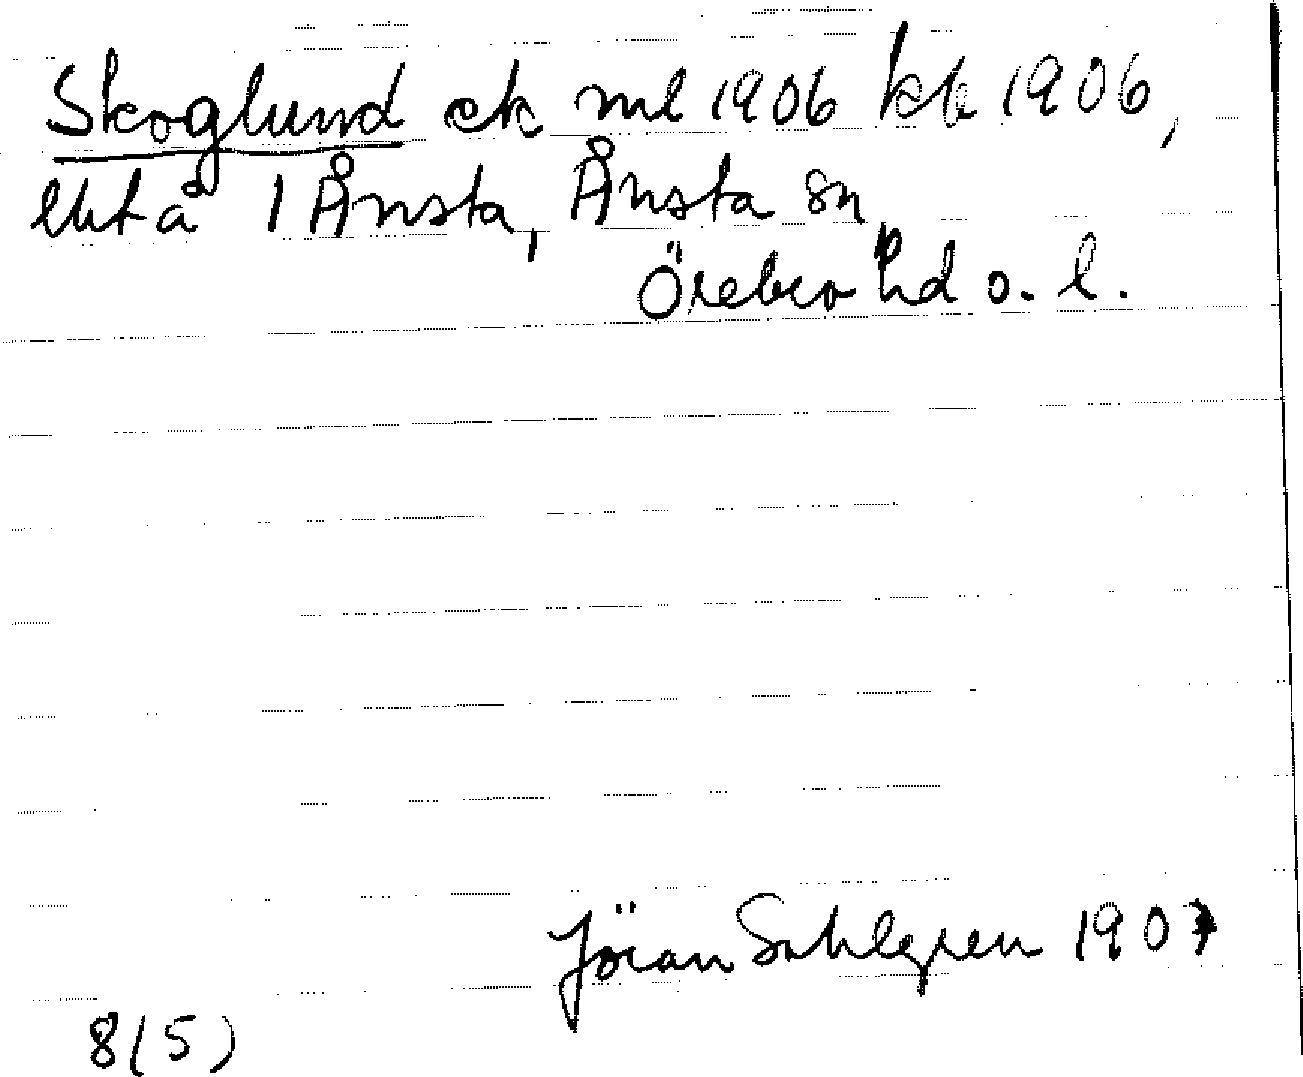 Skoglund ek ml 1906 kb 1906,
lht å 1 Ånsta, Ånsta sn
Örebro hd o. l.
Jöran Sahlgren 1907
8(5)